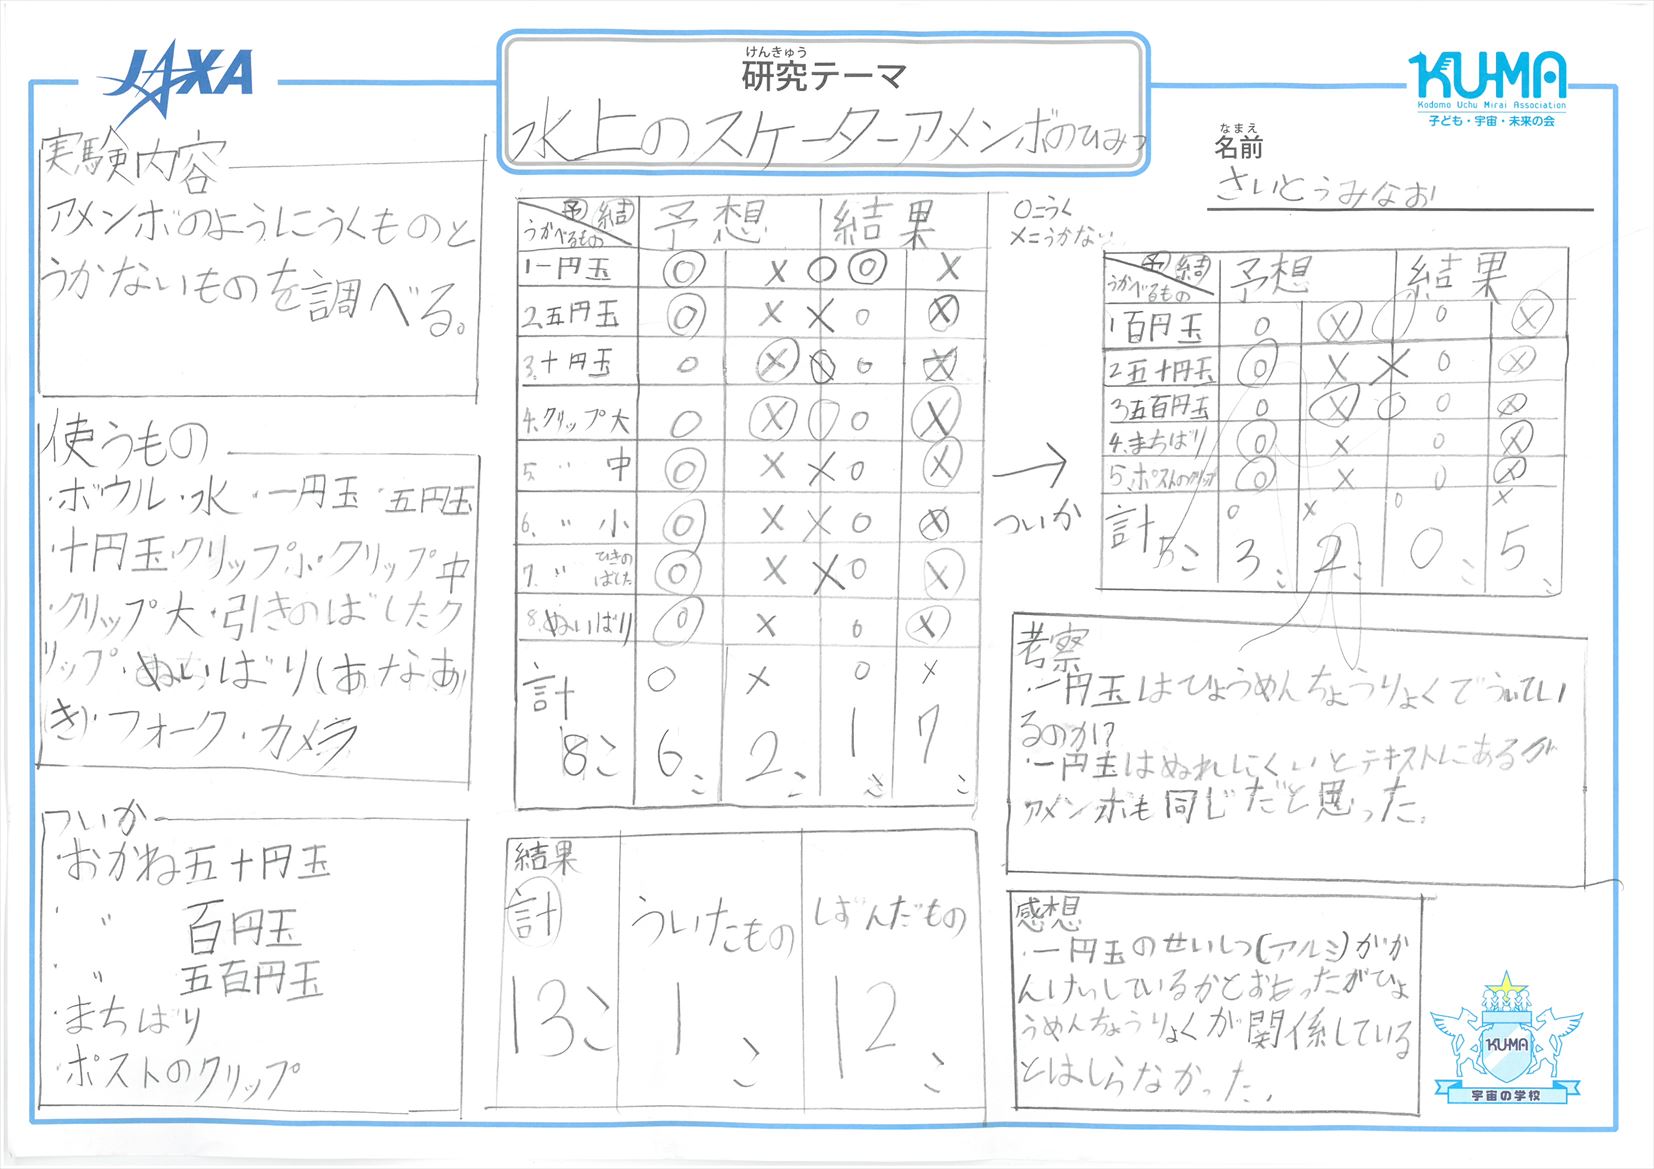 JAXA
けんきゅう
研究テーマ
水上のスケーターアメンボのひみつ
KU-MA
Kodomo Uchu Mirai Association
子ども・宇宙・未来の会
なまえ
名前
さいとうみなお
実験内容
アメンボのようにうくものと
うかないものを調べる。
使うもの
・ボウル・水・一円玉・五円玉
・十円玉・クリップ小・クリップ中
・クリップ大・引きのばしたク
リップ・ぬいばり(あなあ
き)・フォーク・カメラ
ついか
・おかね五十円玉
・〃 百円玉
・〃 五百円玉
・まちばり
・ポストのクリップ
予 結
うかべるもの
予想 結果
1一円玉 ◎ × ○ ◎ ×
2、五円玉 ◎ × × ○ ⊗
3、十円玉 ○ ⊗ ○ ⊗
4、クリップ大 ○ ⊗ ○ ○ ⊗
5、〃 中 ◎ × × ○ ⊗
6、〃 小 ◎ × × ○ ⊗
7、〃 ひきのばした ◎ × × ○ ⊗
8、ぬいばり ◎ × ○ ⊗
計 ○ × ○ ×
8こ 6こ 2こ 1こ 7こ
○=うく
×=うかない
ついか
予 結
うかべるもの
予想 結果
1百円玉 ○ ⊗ ○ ○ ⊗
2五十円玉 ◎ × × ○ ⊗
3五百円玉 ○ ⊗ ○ ○ ⊗
4、まちばり ◎ × ○ ⊗
5、ポストのクリップ ◎ × ○ ⊗
計 ○ × ○ ×
5こ 3こ 2こ 0こ 5こ
結果
計 ういたもの しずんだもの
13こ 1こ 12こ
考察
・一円玉はひょうめんちょうりょくでういてい
るのか!?
・一円玉はぬれにくいとテキストにあるが
アメンボも同じだと思った。
感想
・一円玉のせいしつ(アルミ)がか
んけいしているかとおもったがひょ
うめんちょうりょくが関係している
とはしらなかった。
KU-MA
宇宙の学校